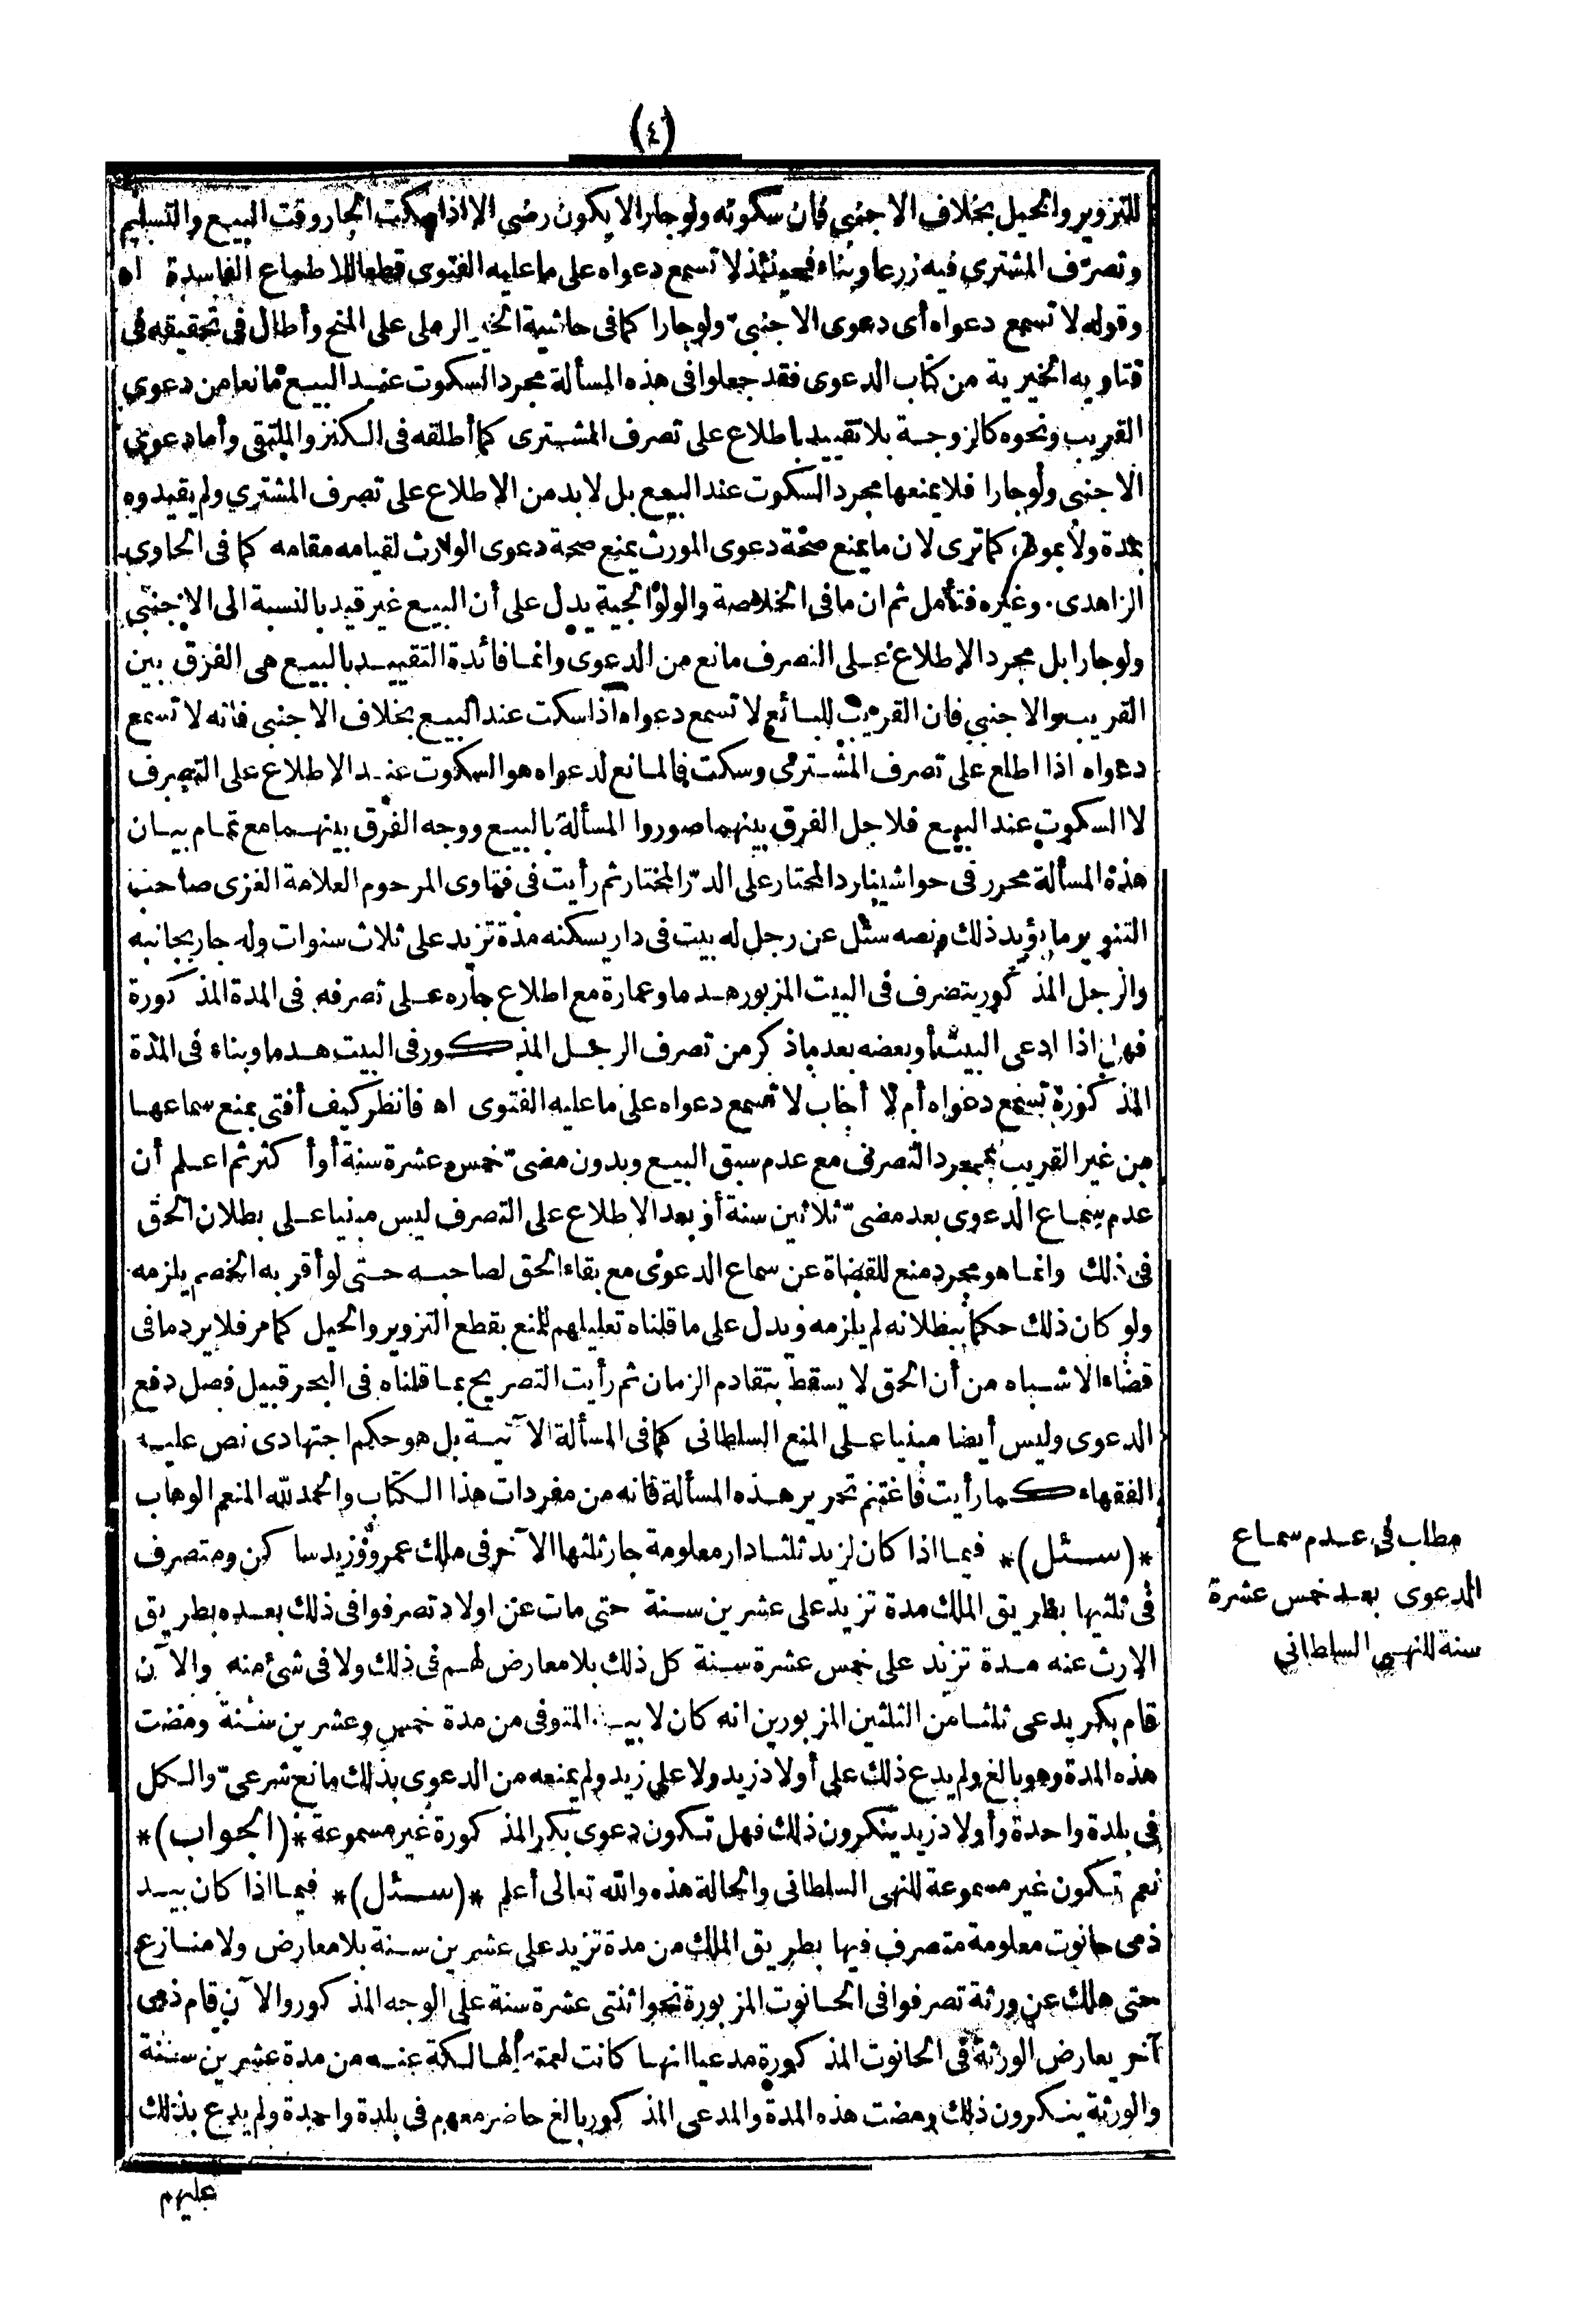 (٤)
للتزوير والحيل بخلاف الاجنبي فان سكوته ولو جارا لا يكون رضى الا اذا سكت الجار وقت البيع والتسليم
وتصرّف المشترى فيه زرعا وبناء فحينئذ لا تسمع دعواه على ما عليه الفتوى قطعا للاطماع الفاسدة اه
وقوله لا تسمع دعواه أى دعوى الاجنبيّ ولو جارا كما فى حاشية الخير الرملى على المنح وأطال فى تحقيقه فى
فتاويه الخيرية من كتاب الدعوى فقد جعلوا فى هذه المسألة مجرد السكوت عند البيع مانعا من دعوى
القريب ونحوه كالزوجة بلا تقييد باطلاع على تصرف المشترى كما أطلقه فى الكنز والملتقى وأما دعوى
الاجنبى ولو جارا فلا يمنعها مجرد السكوت عند البيع بل لا بد من الاطلاع على تصرف المشترى ولم يقيدوه
بمدة ولا بموت كما ترى لان ما يمنع صحة دعوى المورث يمنع صحة دعوى الوارث لقيامه مقامه كما فى الحاوى
الزاهدى وغيره فتأمل ثم ان ما فى الخلاصة والولوالجية يدل على أن البيع غير قيد بالنسبة الى الاجنبي
ولو جارا بل مجرد الاطلاع على التصرف مانع من الدعوى وانما فائدة التقييد بالبيع هى الفرق بين
القريب والاجنبي فان القريب للبائع لا تسمع دعواه اذا سكت عند البيع بخلاف الاجنبى فانه لا تسمع
دعواه اذا اطلع على تصرف المشترى وسكت فالمانع لدعواه هو السكوت عند الاطلاع على التصرف
لا السكوت عند البيع فلاجل الفرق بينهما صوروا المسألة بالبيع ووجه الفرق بينهما مع تمام بيان
هذه المسألة محرر فى حواشينا رد المحتار على الدّر المختار ثم رأيت فى فتاوى المرحوم العلامة الغزى صاحب
التنوير ما يؤيد ذلك ونصه سئل عن رجل له بيت فى دار يسكنه مدة تزيد على ثلاث سنوات وله جار بجانبه
والرجل المذكور يتصرف فى البيت المزبور هدما وعمارة مع اطلاع جاره على تصرفه فى المدة المذكورة
فهل اذا ادعى البيت أو بعضه بعد ما ذكر من تصرف الرجل المذكور فى البيت هدما وبناء فى المدة
المذكورة تسمع دعواه أم لا أجاب لا تسمع دعواه على ما عليه الفتوى اه فانظر كيف أفتى بمنع سماعها
من غير القريب بمجرد التصرف مع عدم سبق البيع وبدون مضىّ خمس عشرة سنة أو أكثر ثم اعلم أن
عدم سماع الدعوى بعد مضىّ ثلاثين سنة أو بعد الاطلاع على التصرف ليس مبنيا على بطلان الحق
فى ذلك وانما هو مجرد منع للقضاة عن سماع الدعوى مع بقاء الحق لصاحبه حتى لو أقر به الخصم يلزمه
ولو كان ذلك حكما ببطلانه لم يلزمه ويدل على ما قلناه تعليلهم للمنع بقطع التزوير والحيل كما مر فلا يرد ما فى
قضاء الاشباه من أن الحق لا يسقط بتقادم الزمان ثم رأيت التصريح بما قلناه فى البحر قبيل فصل دفع
الدعوى وليس أيضا مبنيا على المنع السلطانى كما فى المسألة الآتية بل هو حكم اجتهادى نص عليه
الفقهاء كما رأيت فاغتنم تحرير هذه المسألة فانه من مفردات هذا الكتاب والحمد لله المنعم الوهاب
*(سئل)* فيما اذا كان لزيد ثلثا دار معلومة جار ثلثها الآخر فى ملك عمرو وزيد ساكن ومتصرف
فى ثلثيها بطريق الملك مدة تزيد على عشرين سنة حتى مات عن اولاد تصرفوا فى ذلك بعده بطريق
الارث عنه مدة تزيد على خمس عشرة سنة كل ذلك بلا معارض لهم فى ذلك ولا فى شئ منه والآن
قام بكر يدعى ثلثا من الثلثين المزبورين انه كان لابيه المتوفى من مدة خمس وعشرين سنة ومضت
هذه المدة وهو بالغ ولم يدع ذلك على أولاد زيد ولا على زيد ولم يمنعه من الدعوى بذلك مانع شرعىّ والكل
فى بلدة واحدة وأولاد زيد ينكرون ذلك فهل تكون دعوى بكر المذكورة غير مسموعة *(الجواب)*
نعم تكون غير مسموعة للنهى السلطانى والحالة هذه والله تعالى أعلم *(سئل)* فيما اذا كان بيد
ذمى حانوت معلومة متصرف فيها بطريق الملك من مدة تزيد على عشرين سنة بلا معارض ولا منازع
حتى هلك عن ورثة تصرفوا فى الحانوت المزبورة نحو اثنتى عشرة سنة على الوجه المذكور والآن قام ذمى
آخر يعارض الورثة فى الحانوت المذكورة مدعيا انها كانت لعمته الهالكة عنه من مدة عشرين سنة
والورثة ينكرون ذلك ومضت هذه المدة والمدعى المذكور بالغ حاضر معهم فى بلدة واحدة ولم يدع بذلك
عليهم
مطلب فى عدم سماع
الدعوى بعد خمس عشرة
سنة للنهى السلطانى